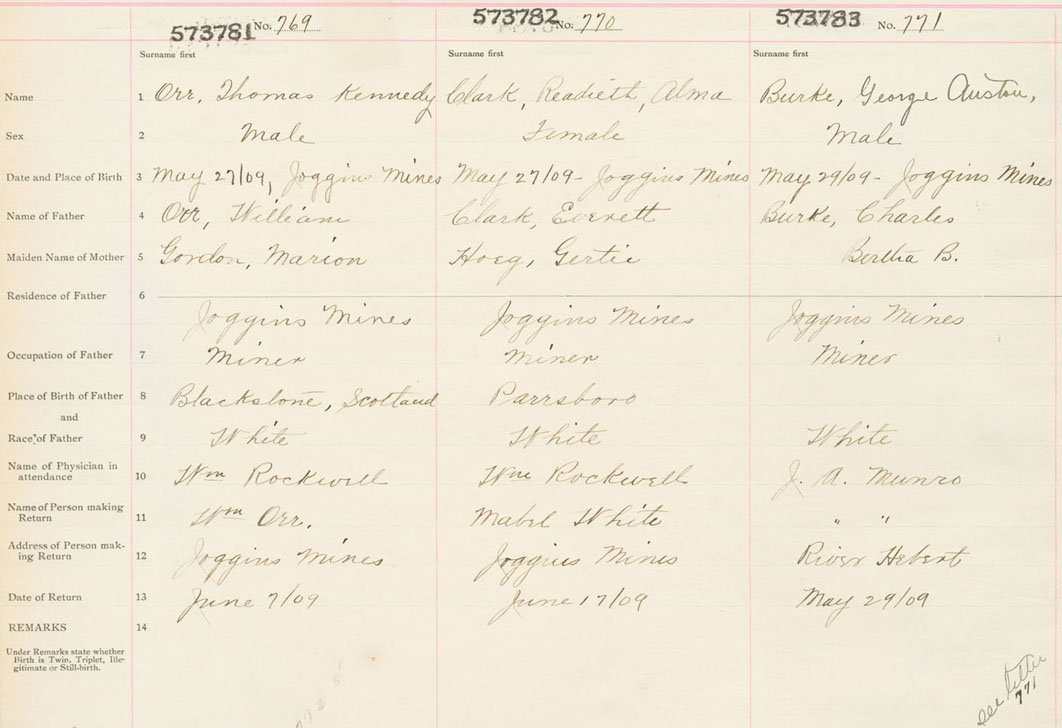 573781 No. 769 573782 No. 770 573783 No. 771
Surname first Surname first Surname first
Name 1 Orr, Thomas Kennedy Clark, Readieth, Alma Burke, George Auston,
Sex 2 Male Female Male
Date and Place of Birth 3 May 27/09, Joggin Mines May 27/09- Joggins Mines May 29/09- Joggins Mines
Name of Father 4 Orr, William Clark, Everett Burke, Charles
Maiden Name of Mother 5 Gordon, Marion Hoeg, Gertie Bertha B.
Residence of Father 6
Joggins Mines Joggins Mines Joggins Mines
Occupation of Father 7 Miner Miner Miner
Place of Birth of Father 8 Blackstone, Scotland Parrsboro
and
Race of Father 9 White White White
Name of Physician in
attendance 10 Wm Rockwell Wm Rockwell J. A. Munro
Name of Person making
Return 11 Wm Orr. Mabel White " "
Address of Person mak-
ing Return 12 Joggins Mines Joggins Mines River Hebert
Date of Return 13 June 7/09 June 17/09 May 29/09
REMARKS 14
Under Remarks state whether
Birth is Twin, Triplet, Ille-
gitimate or Still-birth.
see letter
771